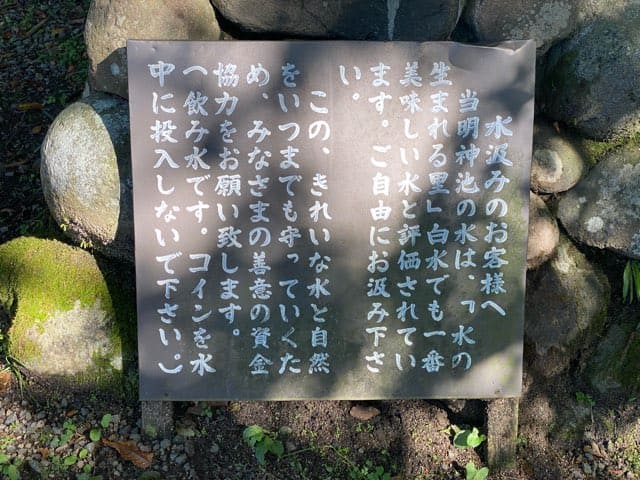 水汲みのお客様へ
当明神池の水は、「水の
生まれる里」白水でも一番
美味しい水と評価されてい
ます。ご自由にお汲み下さ
い。
この、きれいな水と自然
をいつまでも守っていくた
め、みなさまの善意の資金
協力をお願い致します。
(飲み水です。コインを水
中に投入しないで下さい。)